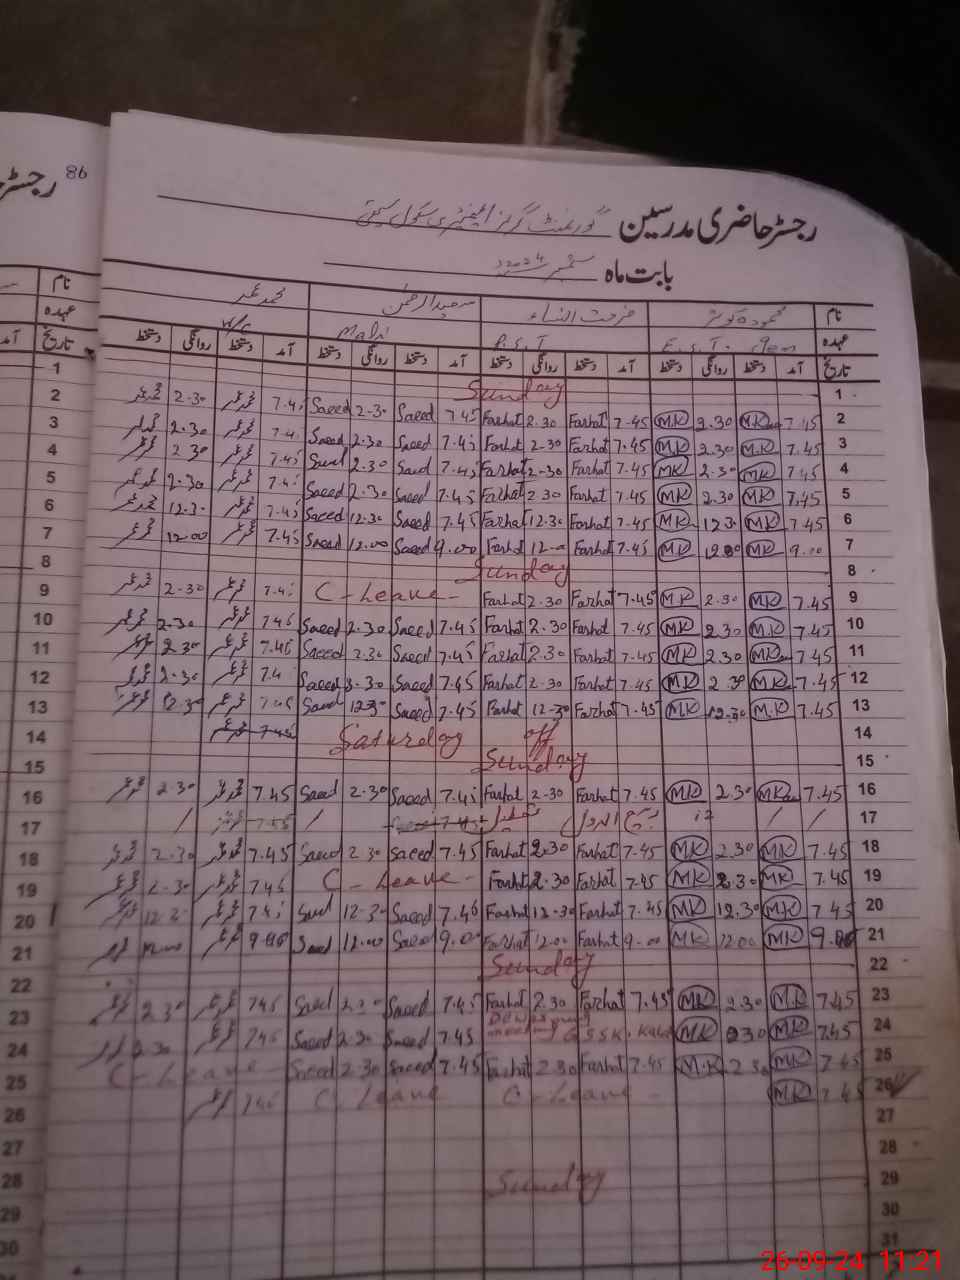 رجسٹر حاضری مدرسین گورنمنٹ گرلز ایلیمنٹری سکول
86
بابت ماہ ستمبر 2024
نام محمودہ کوثر فرحت النساء سعید الرحمٰن محمد عمر
عہدہ E.S.T. P.S.T Mali W/C
تاریخ آمد دستخط روانگی دستخط آمد دستخط روانگی دستخط آمد دستخط روانگی دستخط آمد دستخط روانگی دستخط
1 Sunday 1
2 7.45 MK 2.30 MK 7.45 Farhat 2.30 Farhat 7.45 Saeed 2-30 Saeed 7.45 محمد عمر 2.30 محمد عمر
3 7.45 M.K 2.30 MK 7.45 Farhat 2-30 Farhat 7.45 Saeed 2.30 Saeed 7.45 محمد عمر 2.30
4 7.45 MK 2.30 MK 7.45 Farhat 2-30 Farhat 7.45 Saeed 2.30 Saeed 7.45 محمد عمر 2.30 محمد عمر
5 7.45 MK 2.30 MK 7.45 Farhat 2.30 Farhat 7.45 Saeed 2.30 Saeed 7.45 محمد عمر 2.30 محمد عمر
6 7.45 MK 12.30 MK 7.45 Farhat 12.30 Farhat 7.45 Saeed 12.30 Saeed 7.45 محمد عمر 12.30 محمد عمر
7 9.00 MK 12.00 MK 7.45 Farhat 12-00 Farhat 9.00 Saeed 12.00 Saeed 7.45 محمد عمر 12.00 محمد عمر
8 Sunday
9 7.45 MK 2.30 MK 7.45 Farhat 2.30 Farhat C-Leave- 7.45 محمد عمر 2.30 محمد عمر
10 7.45 M.K 2.30 MK 7.45 Farhat 2.30 Farhat 7.45 Saeed 2.30 Saeed 7.45 محمد عمر 2.30 محمد عمر
11 7.45 MK 2.30 MK 7.45 Farhat 2.30 Farhat 7.45 Saeed 2.30 Saeed 7.45 محمد عمر 2.30 محمد عمر
12 7.45 M.K 2.30 MK 7.45 Farhat 2-30 Farhat 7.45 Saeed 2.30 Saeed 7.4 محمد عمر 2.30 محمد عمر
13 7.45 M.K 12.30 MK 7.45 Farhat 12-30 Farhat 7.45 Saeed 12.30 Saeed 7.45 محمد عمر 12.30 محمد عمر
14 Saturday off 7.45 محمد عمر
15 Sunday
16 7.45 MK 2.30 MK 7.45 Farhat 2-30 Farhat 7.45 Saeed 2.30 Saeed 7.45 محمد عمر 2.30 محمد عمر
17 / / 12 ربیع الاول تعطیل 7.45 / 7.45 /
18 7.45 MK 2.30 MK 7.45 Farhat 2.30 Farhat 7.45 Saeed 2.30 Saeed 7.45 محمد عمر 2.30 محمد عمر
19 7.45 MK 2.30 MK 7.45 Farhat 2.30 Farhat C-Leave- 7.45 محمد عمر 2.30 محمد عمر
20 7.45 MK 12.30 MK 7.45 Farhat 12-30 Farhat 7.45 Saeed 12.30 Saeed 7.45 محمد عمر 12.30 محمد عمر
21 9.00 MK 12.00 MK 9.00 Farhat 12.00 Farhat 9.00 Saeed 12.00 Saeed محمد عمر 12.00
22 Sunday
23 7.45 MK 2.30 MK 7.45 Farhat 2.30 Farhat 7.45 Saeed 2.30 Saeed 7.45 محمد عمر 2.30 محمد عمر
24 7.45 MK 2.30 MK meeting 7.45 Saeed 2.30 Saeed 7.45 محمد عمر 2.30
25 7.45 MK 2.30 M.K 7.45 Farhat 2.30 Farhat 7.45 Saeed 2.30 Saeed C-Leave-
26 7.45 MK C-Leave- C-Leave 7.45 محمد عمر
27
28
29 Sunday
30
31
26-09-24 11:21